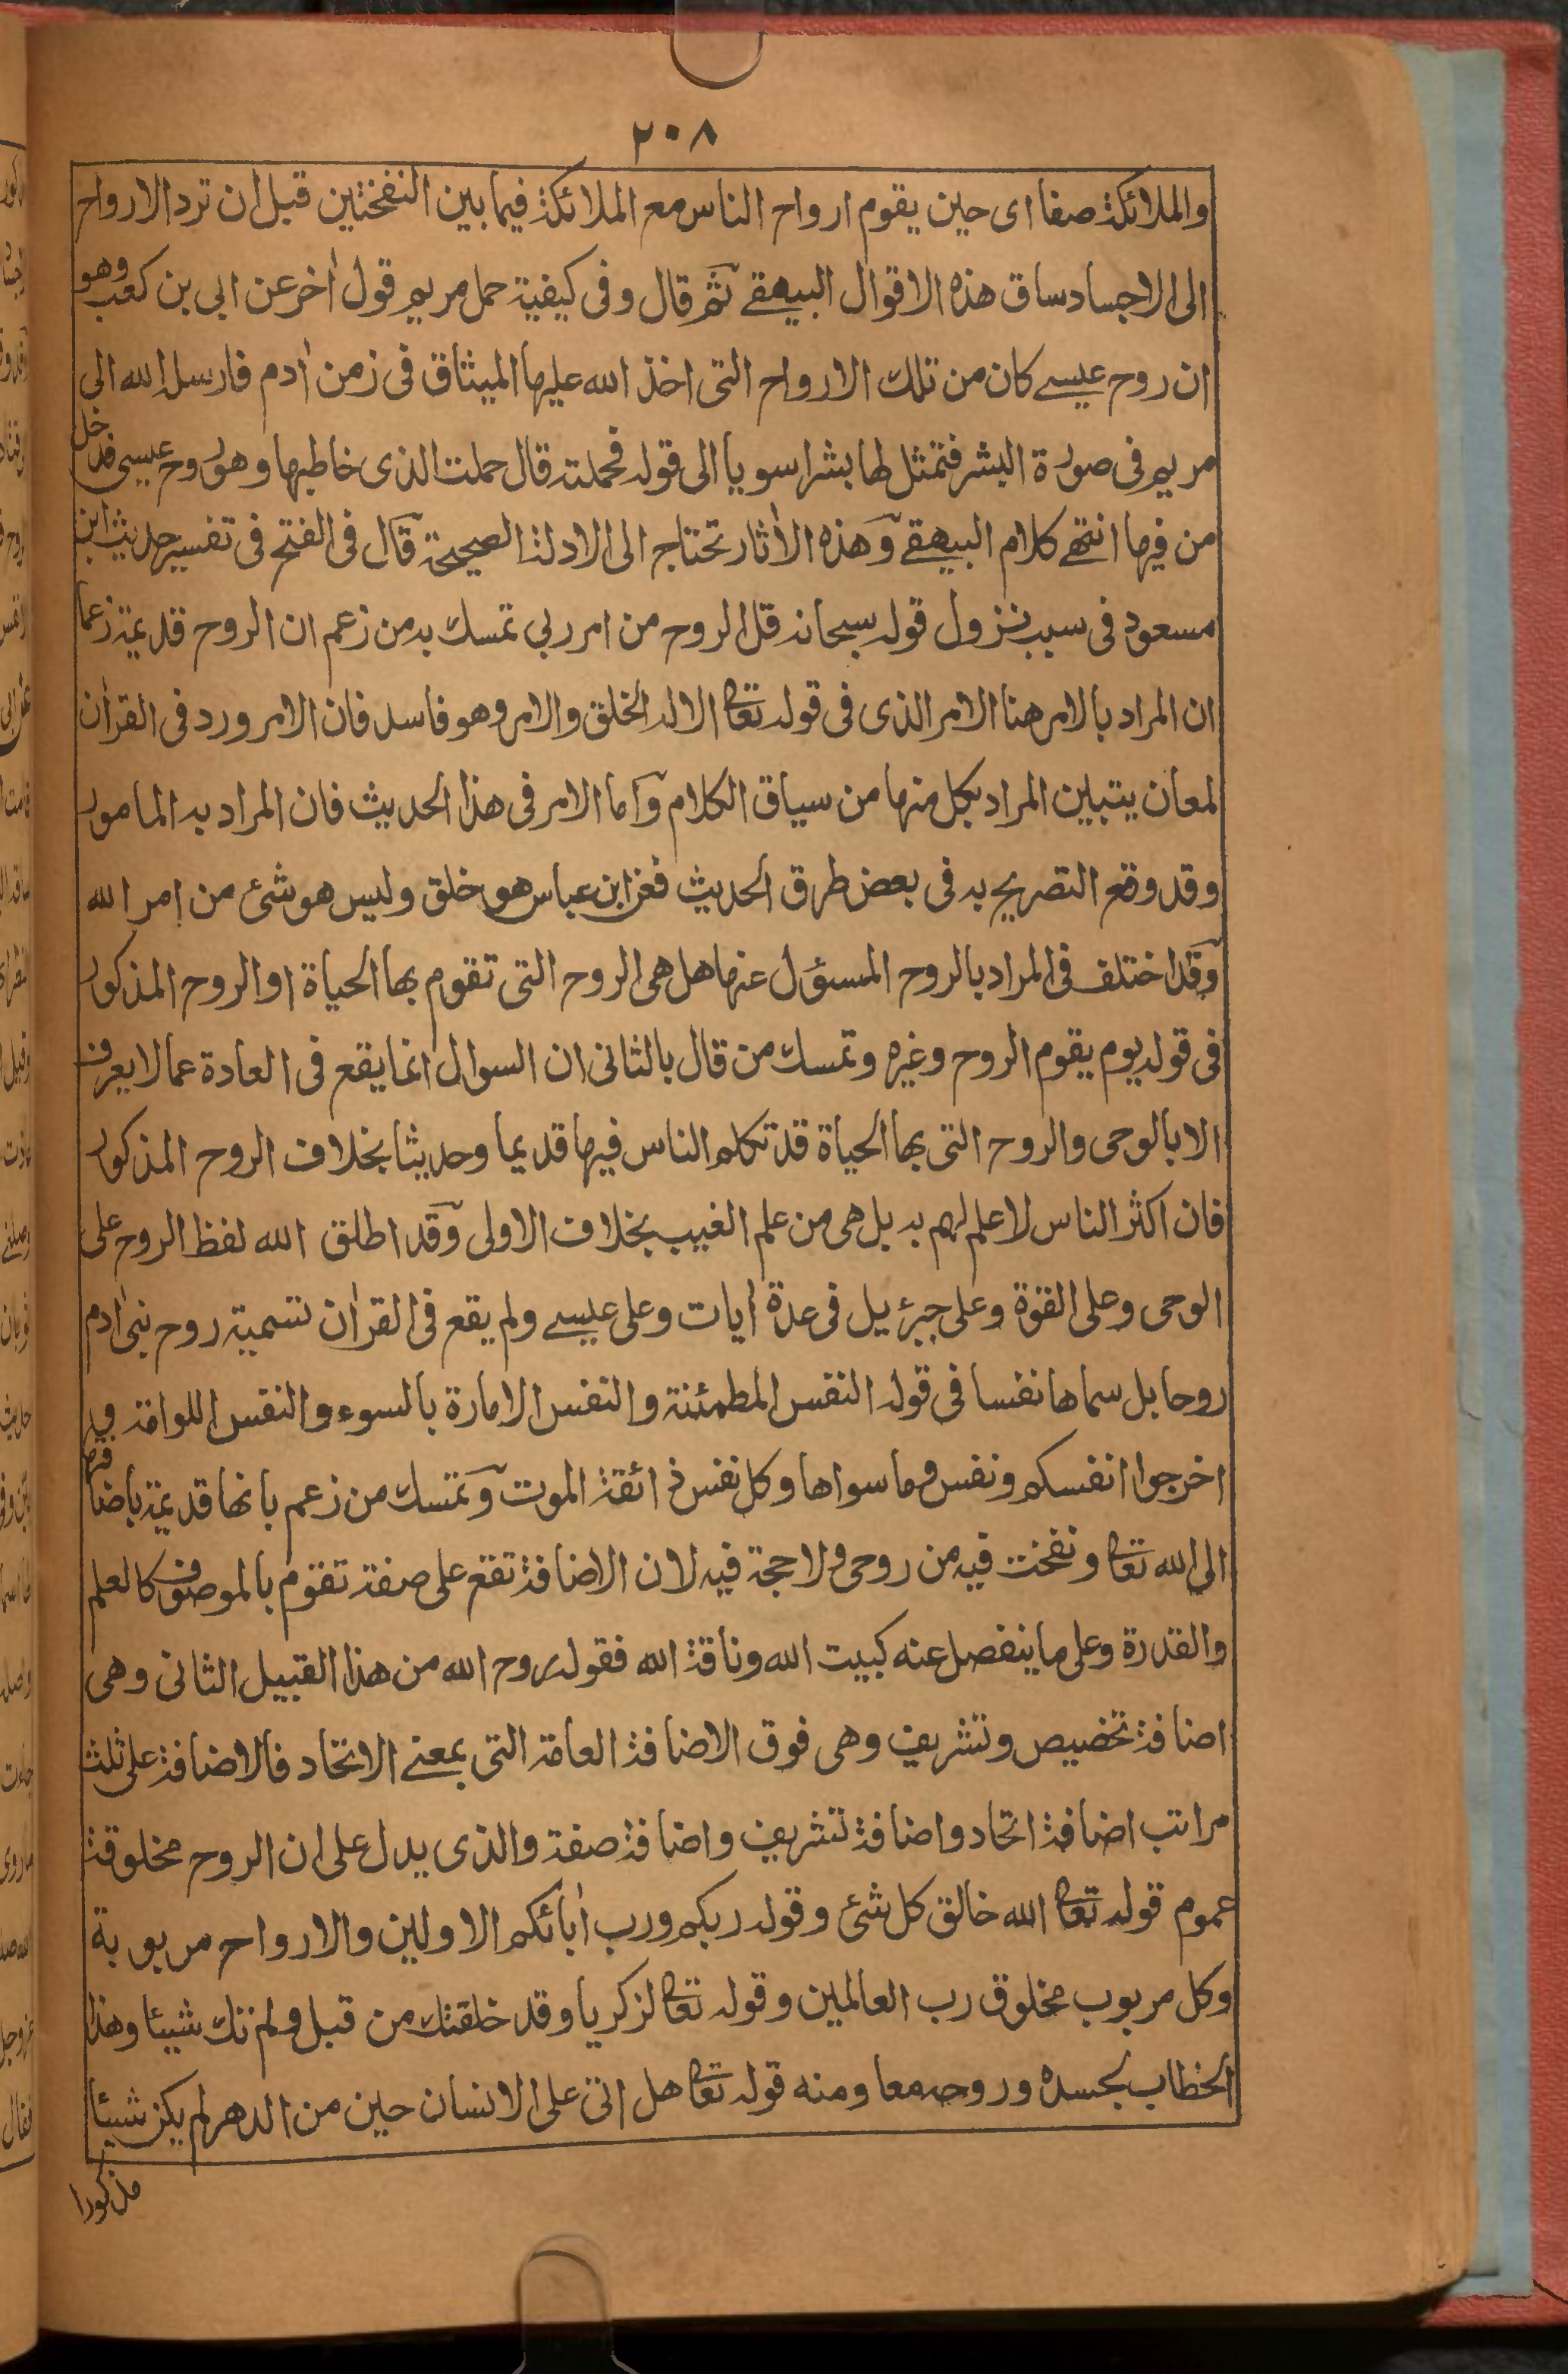 ٢٠٨
والملائكة صفا اى حين يقوم ارواح الناس مع الملائكة فيما بين النفختين قبل ان ترد الارواح
الى الاجساد ساق هذه الاقوال البيهقے ثم قال وفى كيفية حمل مريم قول اٰخر عن ابى بن كعب وهو
ان روح عيسے كان من تلك الارواح التى اخذ الله عليها الميثاق فى زمن اٰدم فارسل الله الى
مريم فى صورة البشر فتمثل لها بشرا سويا الى قوله فحملته قال حملت الذى خاطبها وهو روح عيسى فدخل
من فيها انتهے كلام البيهقے وهذه الاٰثار تحتاج الى الادلة الصحيحة قال فى الفتح فى تفسير حديث ابن
مسعود فى سبب نزول قوله سبحانه قل الروح من امر ربى تمسك به من زعم ان الروح قديمة زعما
ان المراد بالامر هنا الامر الذى فى قوله تعالى الا له الخلق والامر وهو فاسد فان الامر ورد فى القراٰن
لمعان يتبين المراد بكل منها من سياق الكلام واما الامر فى هذا الحديث فان المراد به المامور
وقد وقع التصريح به فى بعض طرق الحديث فعن ابن عباس هو خلق وليس هو شئ من امر الله
وقد اختلف فى المراد بالروح المسؤل عنها هل هى الروح التى تقوم بها الحياة او الروح المذكور
فى قوله يوم يقوم الروح وغيره وتمسك من قال بالثانى ان السوال انما يقع فى العادة عما لا يعرف
الا بالوحى والروح التى بها الحياة قد تكلم الناس فيها قديما وحديثا بخلاف الروح المذكور
فان اكثر الناس لا علم لهم به بل هى من علم الغيب بخلاف الاولى وقد اطلق الله لفظ الروح على
الوحى وعلى القوة وعلى جبرئيل فى عدة اٰيات وعلى عيسے ولم يقع فى القراٰن تسمية روح بنى اٰدم
روحا بل سماها نفسا فى قوله النفس المطمئنة والنفس الامارة بالسوء والنفس اللوامة فيه
اخرجوا انفسكم ونفس وما سواها وكل نفس ذائقة الموت وتمسك من زعم بانها قديمة باضافتها
الى الله تعالى ونفخت فيه من روحى ولا حجة فيه لان الاضافة تقع على صفة تقوم بالموصوف كالعلم
والقدرة وعلى ما ينفصل عنه كبيت الله وناقة الله فقوله روح الله من هذا القبيل الثانى وهى
اضافة تخصيص وتشريف وهى فوق الاضافة العامة التى بمعنے الاتحاد فالاضافة على ثلث
مراتب اضافة اتحاد واضافة تشريف واضافة صفة والذى يدل على ان الروح مخلوقة
عموم قوله تعالى الله خالق كل شئ وقوله ربكم ورب اٰبائكم الاولين والارواح مربوبة
وكل مربوب مخلوق رب العالمين وقوله تعالى لزكريا وقد خلقتك من قبل ولم تك شيئا وهذا
الخطاب لجسده وروحه معا ومنه قوله تعالى هل اتى على الانسان حين من الدهر لم يكن شيئا
مذكورا